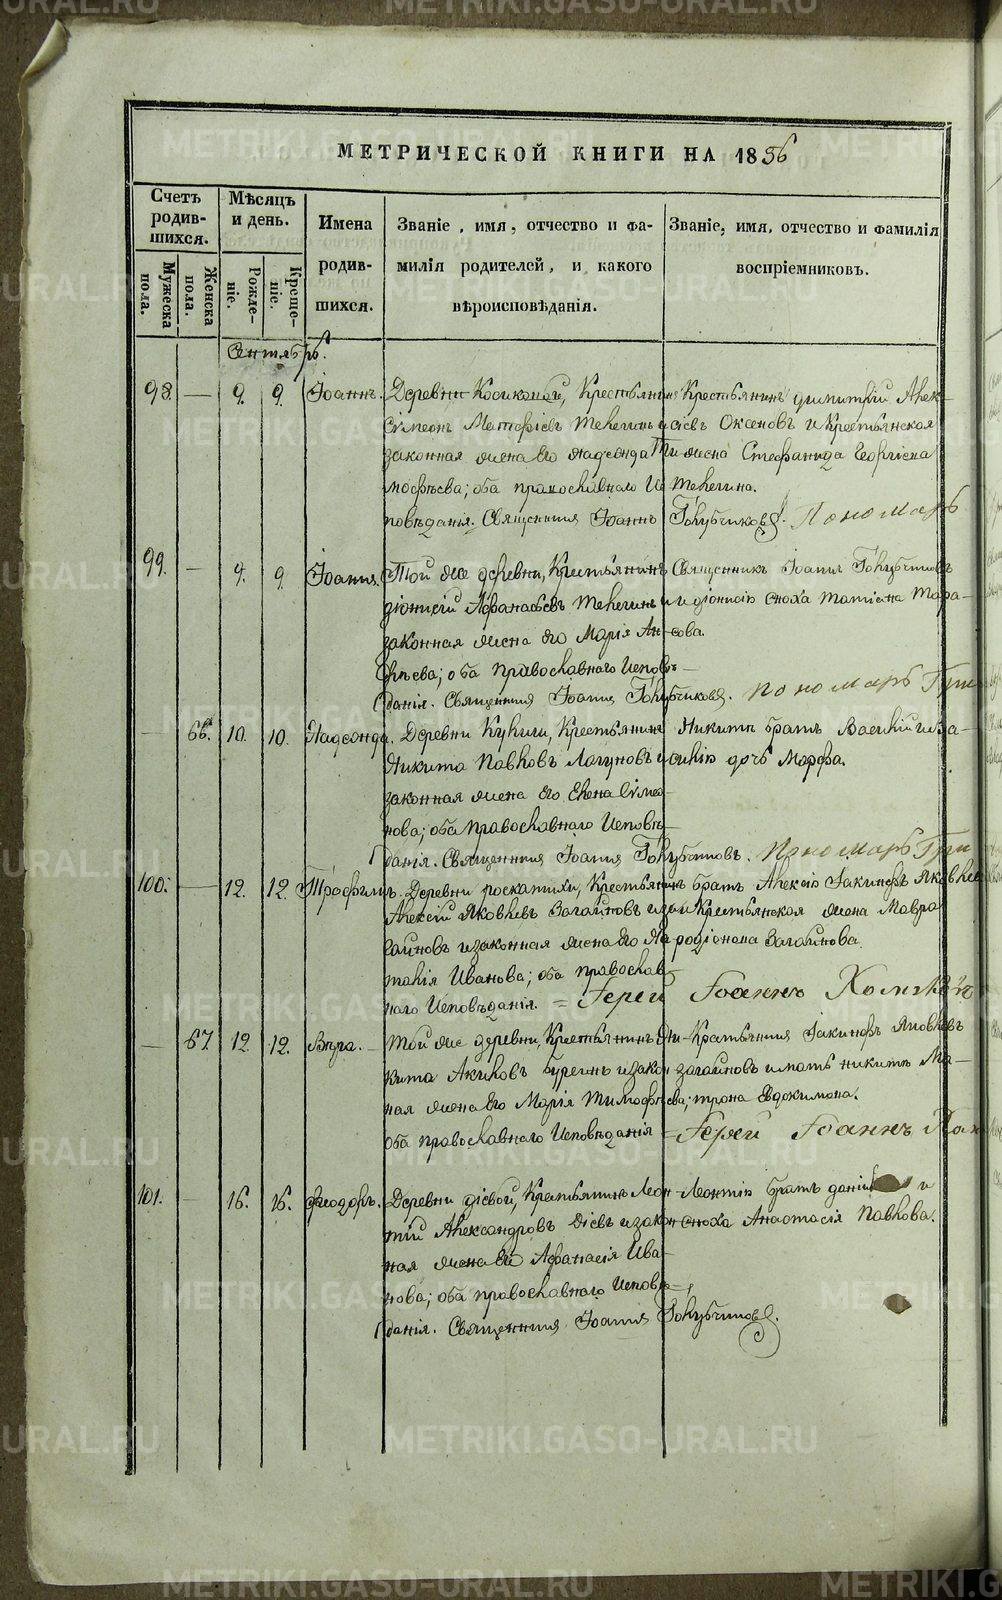 МЕТРИЧЕСКОЙ КНИГИ НА 1856
Счетъ родив-шихся.
Мужеска пола.
Женска пола.
Мѣсяцъ и день.
Рожде-ніе.
Креще-ніе.
Имена родив-шихся.
Званіе, имя, отчество и фа-
милія родителей, и какого
вѣроисповѣданія.
Званіе, имя, отчество и фамилія
воспріемниковъ.
Сентябрь.
98. — 9. 9. Іоаннъ.
Деревни Крестьянинъ
Сѵмеонъ Матфіевъ Телегинъ и
законная жена его Надежда Ти-
мофѣева; оба православнаго Ис-
повѣданія. Священникъ Іоаннъ Голубчиковъ. Пономарь
Крестьянинъ Димитрій Алек-
сіевъ Оксеновъ и Крестьянская
жена Стефанида Георгіева
Телегина.
99. — 9. 9. Іоаннъ.
Той же деревни, Крестьянинъ
Діонисій Афанасьевъ Телегинъ и
законная жена его Марія Ан-
оба православнаго Исповѣ-
данія. Священникъ Іоаннъ Голубчиковъ. Пономарь Гри
Священникъ Іоаннъ Голубчиковъ
и Діонисію сноха Татіана Тара-
сова.
— 66. 10. 10. Надежда.
Деревни Крестьянинъ
Никита Павловъ Лагуновъ и
законная жена его Елена Сѵмео-
нова; оба православнаго Исповѣ-
данія. Священникъ Іоаннъ Голубчиковъ. Пономарь Гри
Никитѣ братъ Василій и Ва-
силію дочь Марфа.
100. — 12. 12. Трофимъ.
Деревни Крестьянинъ
Алексій Яковлевъ Загайновъ и за-
конная жена его На-
талія Иванова; оба православ-
наго Исповѣданія. = Іерей Іоаннъ
братъ Алексію Іакинфъ Яковлев
и Крестьянская жена Мавра
Родіонова Загайнова.
— 67. 12. 12. Вѣра.
Той же деревни, Крестьянинъ Ни-
кита Акиловъ Бурсинъ и закон-
ная жена его Марія Тимофѣева;
оба православнаго Исповѣданія = Іерей Іоаннъ
Крестьянинъ Іакинфъ Яковлевъ
Загайновъ и мать Никитѣ Ма-
трона Евдокимова.
101. — 16. 16. Ѳеодоръ.
Деревни Дievой, Крестьянинъ Леон-
тій Александровъ Діевъ и закон-
ная жена его Афанасія Ива-
нова; оба православнаго Исповѣ-
данія. Священникъ Іоаннъ Голубчиковъ.
Леонтію братъ Даніилъ и
сноха Анастасія Павлова.
METRIKI.GASO-URAL.RU